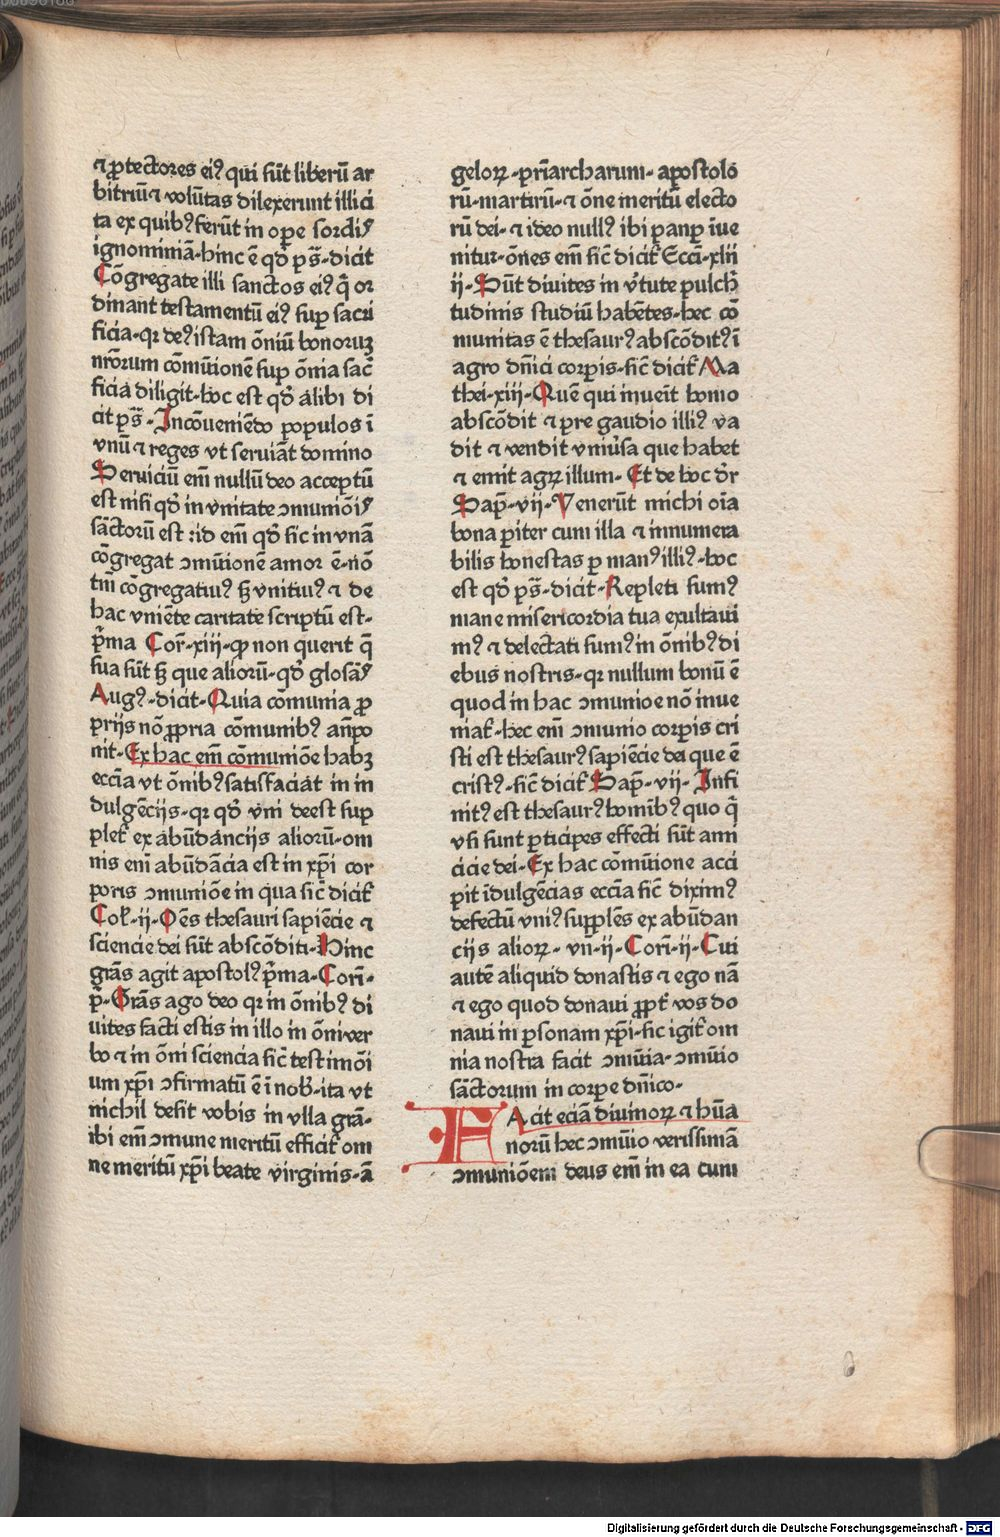 ⁊ ꝓtectores eiꝰ qui sūt liberū ar
bitriū ⁊ volūtas dilexerunt illici
ta ex quibꝰ ferūt in oꝑe sordiſ
ignominiā·hinc ē qđ pš·dicit
Cōgregate illi sanctos eiꝰ q̄ or
dinant testamentū eiꝰ suꝑ sacri
ficia·qꝛ deꝰ istam ōniū bonoruꝫ
nrōrum cōmūionē suꝑ ōnia sac̄
ficia diligit·hoc est qđ alibi di
cit pš·Incōueniēdo populos ī
vnū ⁊ reges vt seruiāt domino
Seruiciū em̄ nullū deo acceptū
est nisi qđ in vnitate ↄmuniōiſ
sāctorū est :id em̄ qđ sic in vnā
cōgregat ↄmūionē amor ē·nō
tm̄ cōgregatiuꝰ sꝫ vnitiuꝰ ⁊ de
hac vniēte caritate scriptū est·
p̄ma Cor̄·xiii·ꝙ non querit q̄
sua sūt sꝫ que aliorū·qđ glosāſ
Augꝰ·dicit·Quia cōmunia ꝓ
prijs nō ꝓpria cōmunibꝰ an̄po
nit·Ex hac em̄ cōmuniōe habꝫ
eccīa vt ōnibꝰ satisfaciāt in in
dulgēcijs·qꝛ qđ vni deest sup
plet̉ ex abūdancijs aliorū·om
nis eni̅ abūdācia est in xp̄i cor
poris ↄmuniōe in qua sic̄ dicit̉
Col̉·ii·Oēs thesauri sapiēcie ⁊
sciencie dei sūt abscōditi·Hinc
grās agit apostolꝰ p̄ma·Corī·
p̄·Grās ago deo qꝛ in ōnibꝰ di
uites facti estis in illo in ōni ver
bo ⁊ in ōni sciencia sic̄ testimōi
um xp̄i ↄfirmatū ē ī nob̄·ita vt
nichil desit vobis in vlla grā·
ibi em̄ ↄmune meritū efficit̉ om
ne meritū xp̄i beate virginis·ā
geloꝝ·pri̅archarum·apostolo
rū·martirū·⁊ ōne meritū electo
rū dei·⁊ ideo nullꝰ ibi panꝑ īue
nitur·ōnes em̄ sic̄ dicit̉ Eccī·xlii
ii·Sūt diuites in v̉tute pulch̉
tudinis studiū habētes·hec cō
munitas ē thesaurꝰ abscōditꝰ ī
agro dn̄ici corpis·sic̄ dicit̉ Ma
thei·xiii·Quē qui inueīt homo
abscōdit ⁊ pre gaudio illiꝰ va
dit ⁊ vendit vniu̇sa que habet
⁊ emit agꝝ illum·Et de hoc dr̄
Sap̄·vii·Venerūt michi oīa
bona ꝑiter cum illa ⁊ innumera
bilis honestas ꝑ manꝰ illiꝰ·hoc
est qđ pš·dicit·Repleti sumꝰ
mane misericordia tua exultaui
mꝰ ⁊ delectati sumꝰ in ōnibꝰ di
ebus nostris·qꝛ nullum bonū ē
quod in hac ↄmunioe nō inue
niat̉·hec em̄ ↄmunio corpis cri
sti est thesaurꝰ sapiēcie dei que ē
cristꝰ·sic̄ dicit̉ Sap̄·vii·Infi
nitꝰ est thesaurꝰ homīb̄ꝰ quo q̄
vsi sunt ꝑticipes effecti sūt ami
cicie dei·Ex hac cōmūione acci
pit īdulgēcias eccīa sic̄ diximꝰ
defectū vniꝰ supplēs ex abūdan
cijs alioꝝ·vn̄·ii·Cori̅·ii·Cui
autē aliquid donastis ⁊ ego nā
⁊ ego quod donaui ꝓpt̉ vos do
naui in ꝑsonam xp̄i·sic igit̉ om
nia nostra facit ↄmūia·ↄmūio
sāctorum in corpe dn̄ico·
FAcit eciā diuinoꝝ ⁊ hūa
norū hec ↄmūio verissimā
ↄmuniōem deus em̄ in ea cum
Digitalisierung gefördert durch die Deutsche Forschungsgemeinschaft - DFG